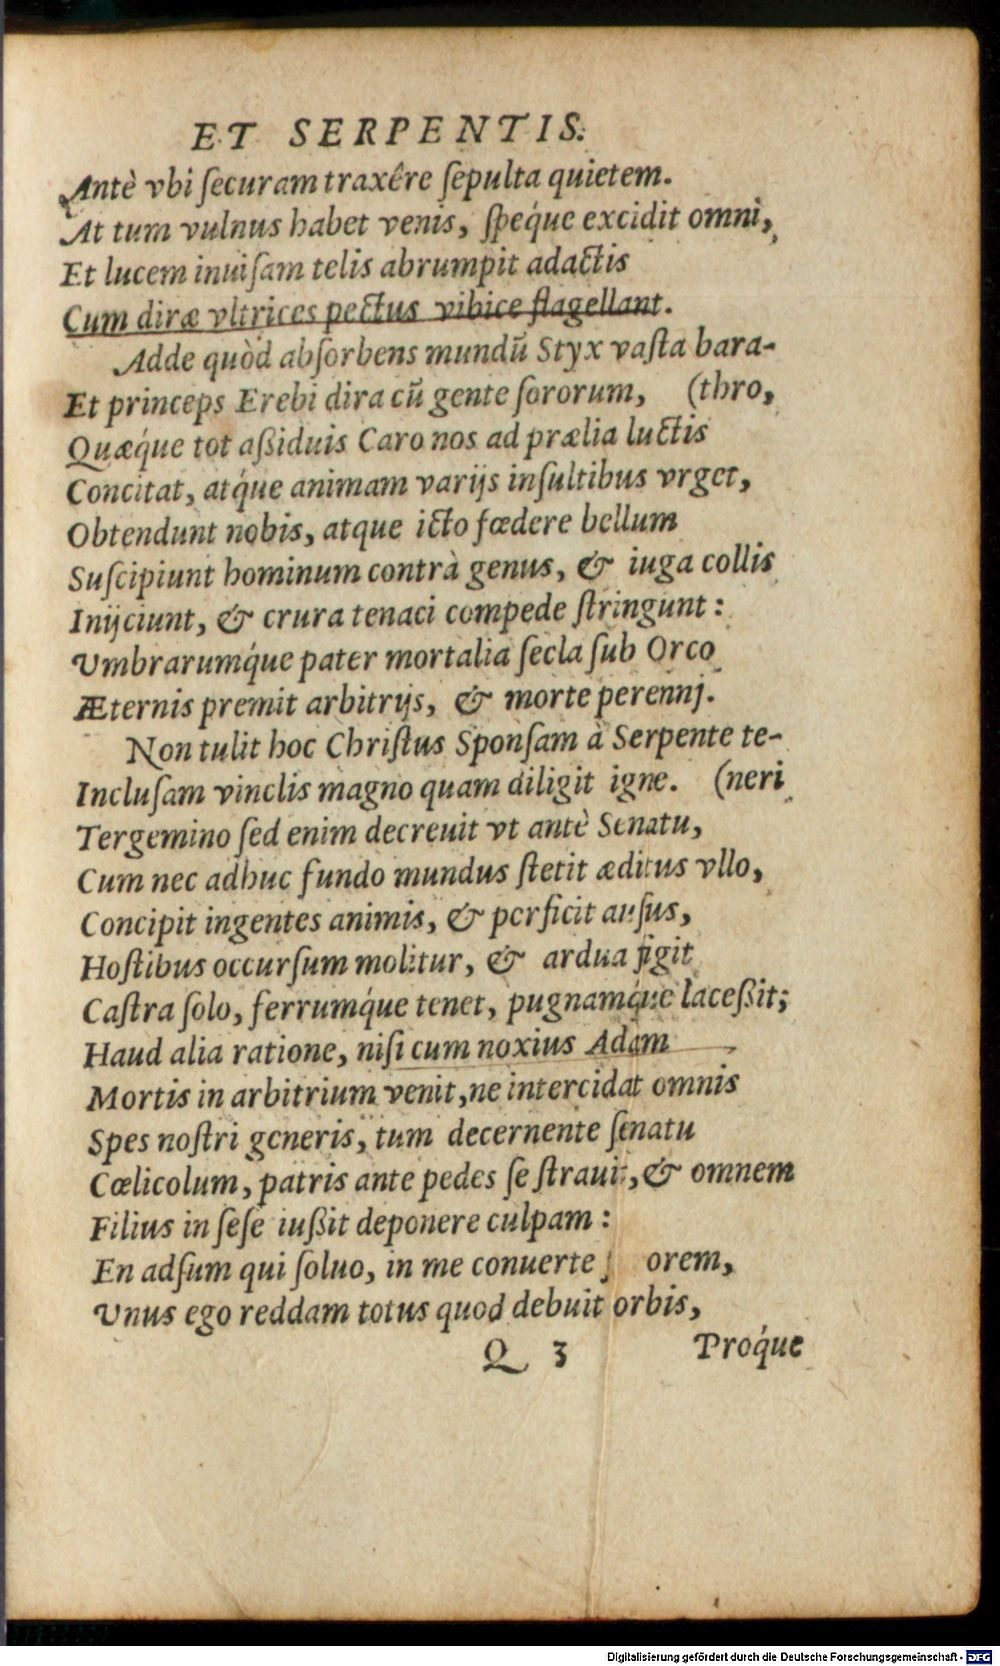 ET SERPENTIS.
Antè vbi ſecuram traxêre ſepulta quietem.
At tum vulnus habet venis, ſpéque excidit omni,
Et lucem inuiſam telis abrumpit adactis
Cum diræ vltrices pectus vibice flagellant.
Adde quòd abſorbens mundũ Styx vaſta bara-
Et princeps Erebi dira cũ gente ſororum, (thro,
Quæq́ue tot aßiduis Caro nos ad prælia luctis
Concitat, atq́ue animam varijs inſultibus vrget,
Obtendunt nobis, atque icto fœdere bellum
Suſcipiunt hominum contrà genus, & iuga collis
Inijciunt, & crura tenaci compede ſtringunt:
Vmbrarumq́ue pater mortalia ſecla ſub Orco
Æternis premit arbitrijs, & morte perennj.
Non tulit hoc Chriſtus Sponſam à Serpente te-
Incluſam vinclis magno quam diligit igne. (neri
Tergemino ſed enim decreuit vt antè Senatu,
Cum nec adhuc fundo mundus ſtetit æditus vllo,
Concipit ingentes animis, & perficit auſus,
Hoſtibus occurſum molitur, & ardua figit
Caſtra ſolo, ferrumq́ue tenet, pugnamq́ue laceßit;
Haud alia ratione, niſi cum noxius Adam
Mortis in arbitrium venit, ne intercidat omnis
Spes noſtri generis, tum decernente ſenatu
Cœlicolum, patris ante pedes ſe ſtrauit, & omnem
Filius in ſeſe iußit deponere culpam:
En adſum qui ſoluo, in me conuerte orem,
Vnus ego reddam totus quod debuit orbis,
Q 3 Proq́ue
Digitalisierung gefördert durch die Deutsche Forschungsgemeinschaft - DFG